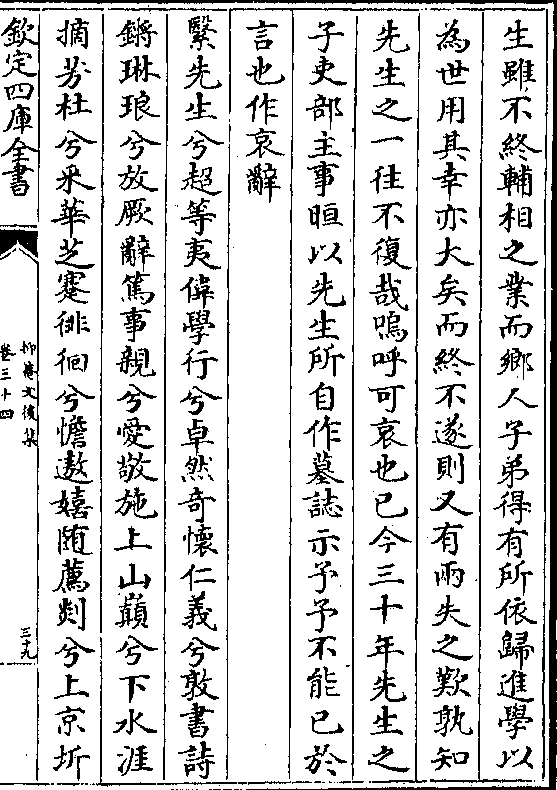 生雖不終輔相之業而鄉人子弟得有所依歸進學以
為世用其幸亦大矣而終不遂則又有兩失之歎孰知
先生之一往不復哉嗚呼可哀也已今三十年先生之
子吏部主事晅以先生所自作墓誌示予予不能已於
言也作哀辭
繄先生兮超等夷偉學行兮卓然奇懷仁義兮敦書詩
鏘琳琅兮放厥辭篤事親兮愛敬施上山巔兮下水涯
摘芳杜兮采華芝蹇徘徊兮憺遨嬉随薦剡兮上京圻
欽定四庫全書
抑菴文後集
卷三十四
三十九